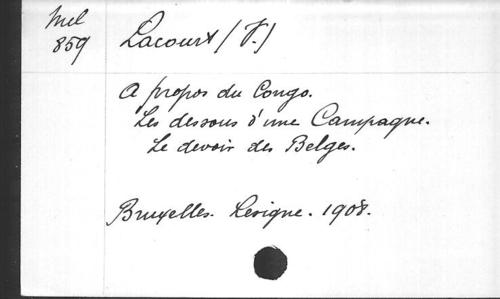 Mel
859
Lacourt (F.)
A propos du Congo.
Les dessous d'une Campagne.
Le devoir des Belges.
Bruxelles. Lesigne. 1908.